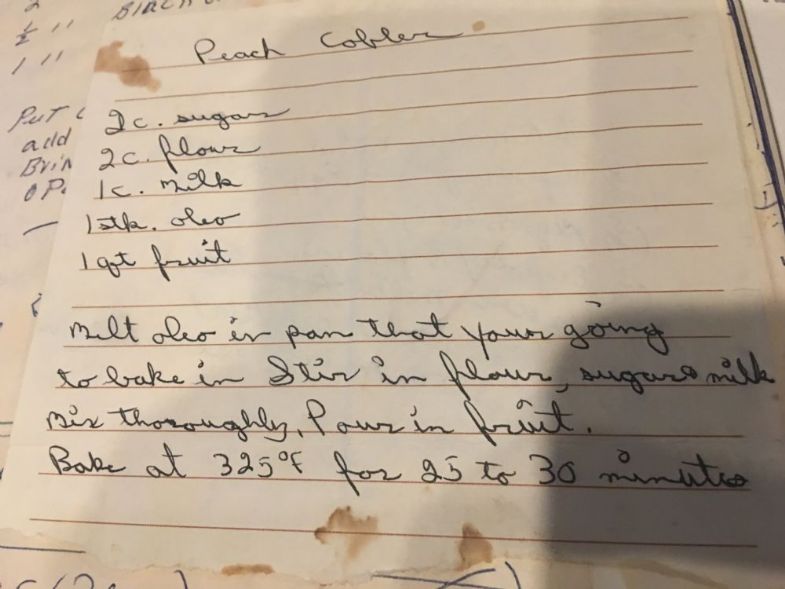 2
½ "
1 "
Put
add
Brin
Peach Cobler
2c. sugar
2c. flour
1c. milk
1 stk. oleo
1 qt fruit
Melt oleo in pan that your going
to bake in Stir in flour, sugar & milk
Mix thoroughly, Pour in fruit.
Bake at 325°F for 25 to 30 minutes